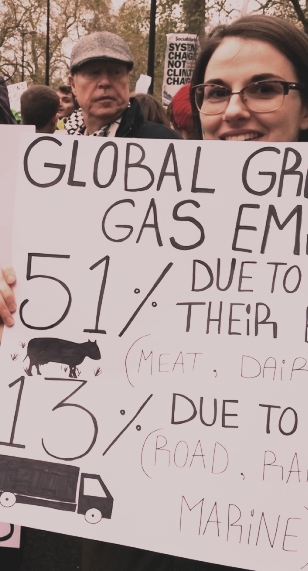 SYSTEM
CHANGE
NOT
CLIMATE
CHANGE
GLOBAL GRE
GAS EMI
51% DUE TO
THEIR
(MEAT, DAIR
13% DUE TO
(ROAD, RA
MARINE